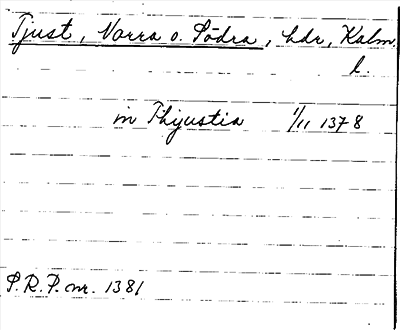 Tjust, Norra o. Södra, hdr, Kalm.
l.
in Thijustia 1/11 1378
S.R.P. nr. 1381